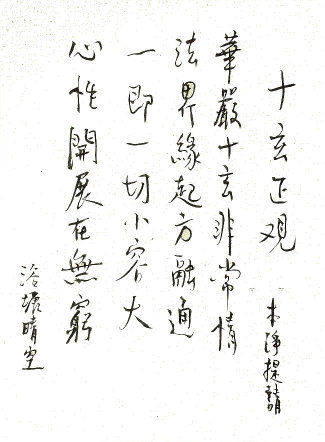 十玄正观
本淨提請
華嚴十玄非常情
法界緣起方融通
一即一切小容大
心惟開展在無窮
晴空